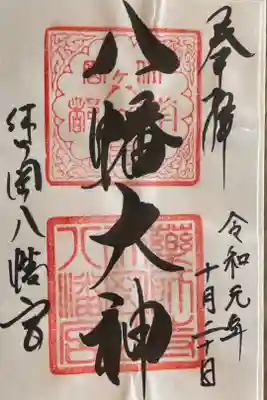 奉拝
八幡大神
令和元年
十月二十日
休ヶ岡八幡宮